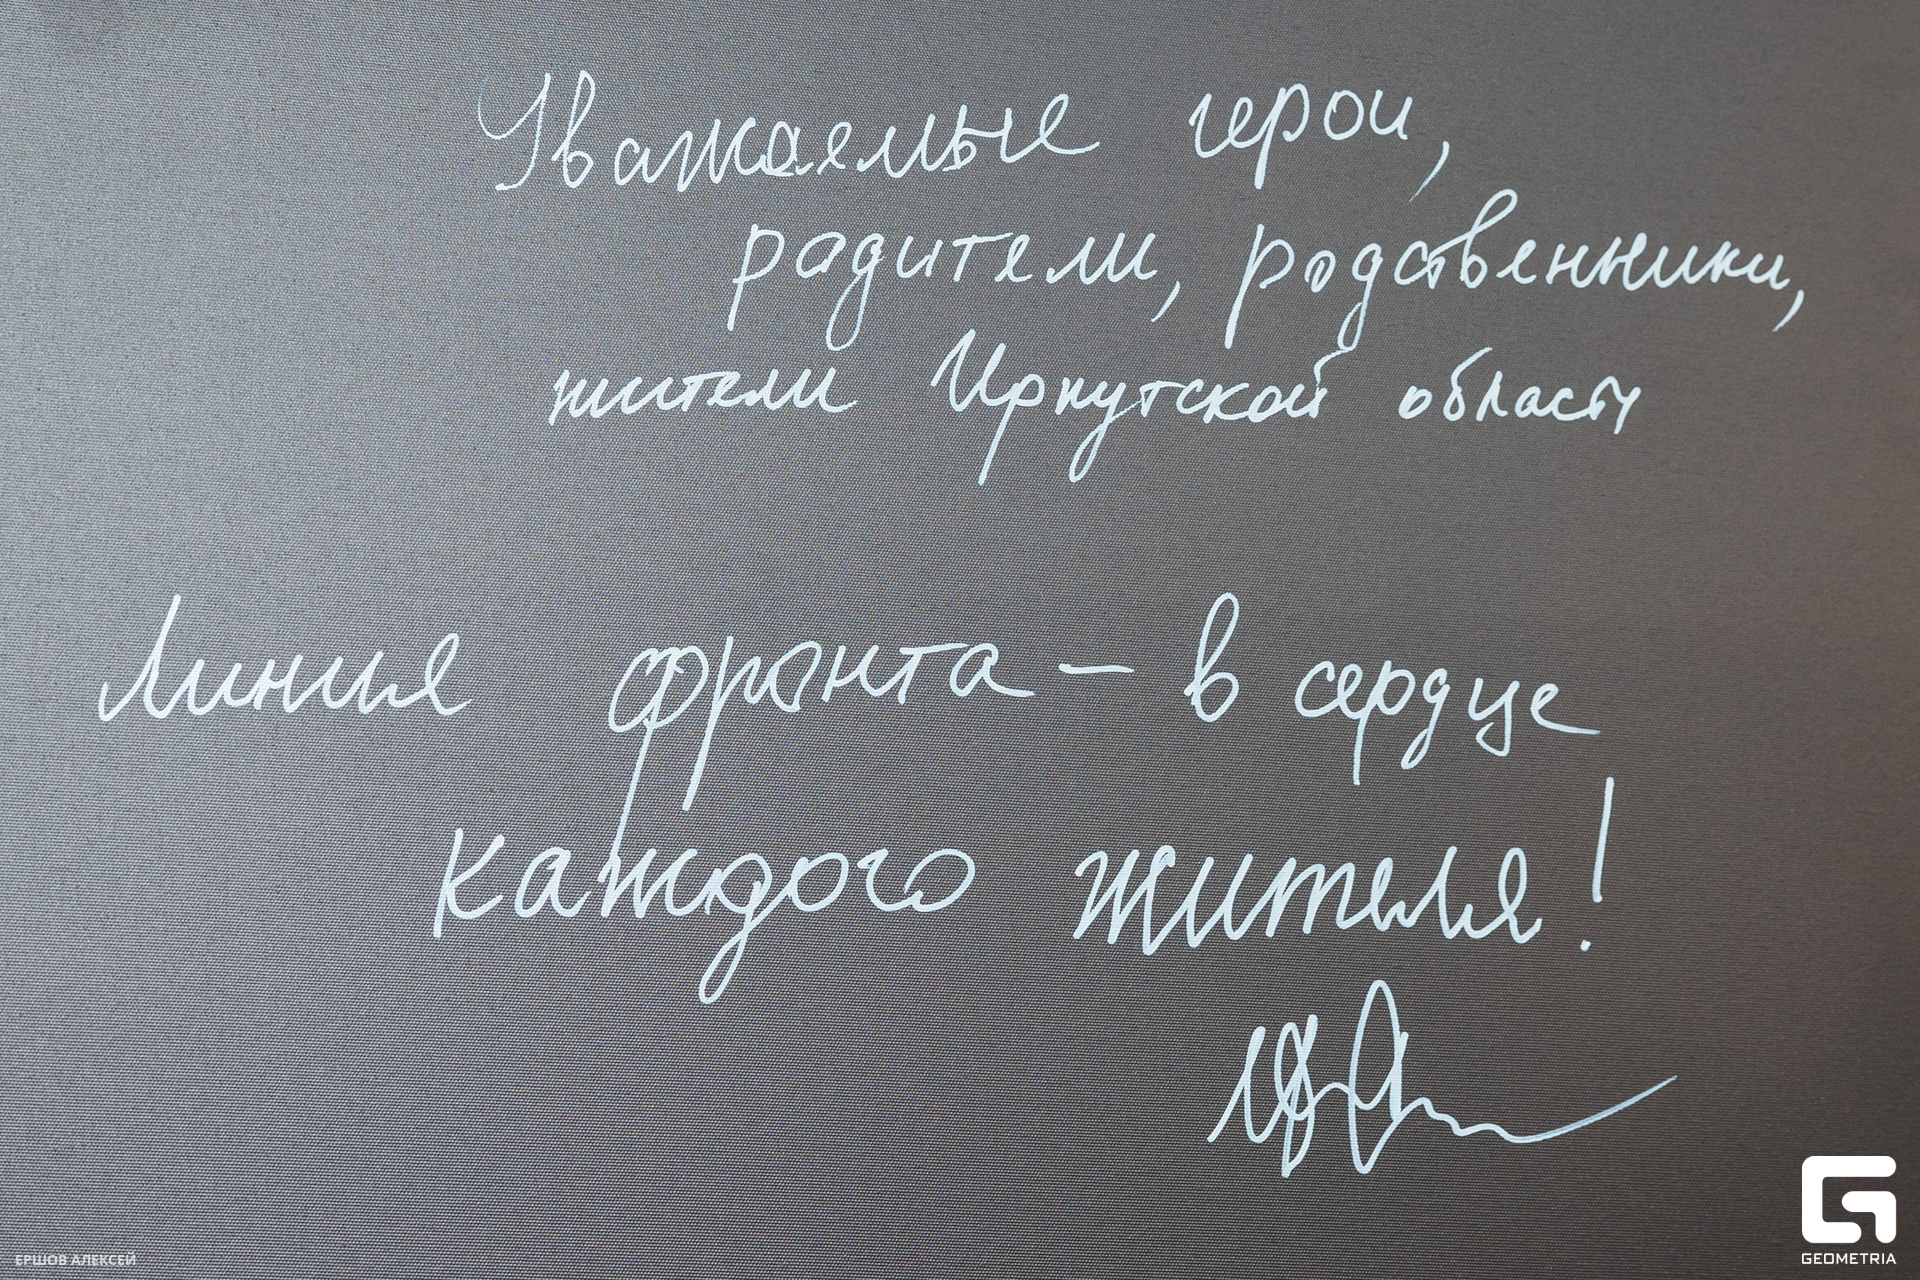 Уважаемые герои,
радители, родственники,
жители Иркутской области
Линия фронта – в сердце
каждого жителя!
ЕРШОВ АЛЕКСЕЙ
GEOMETRIA